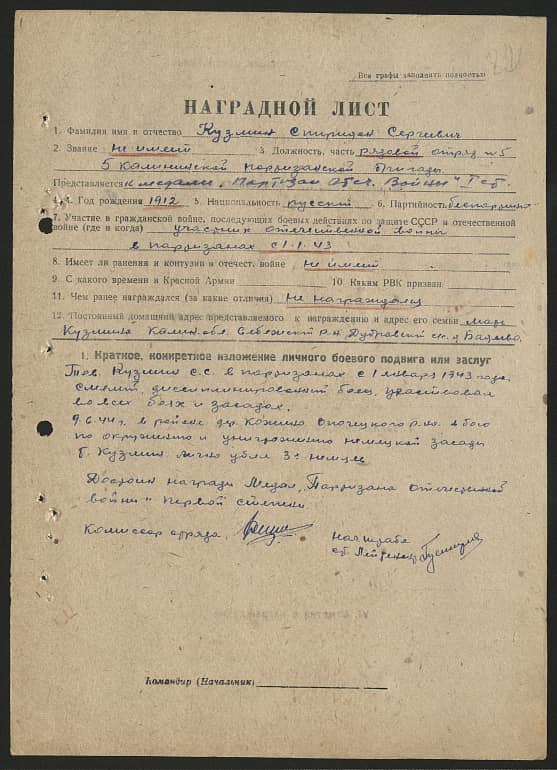 Все графы заполнять полностью
НАГРАДНОЙ ЛИСТ
1. Фамилия имя и отчество Кузмин Спиридон Сергеевич
2. Звание не имеет 3. Должность, часть рядовой отряд №5
5 Калининской партизанской бригады
Представляется к медали „Партизан Отеч. Войны" I ст.
4. Год рождения 1912 5. Национальность русский 6. Партийность беспартийн
7. Участие в гражданской войне, последующих боевых действиях по защите СССР и отечественной
войне (где и когда) участник отечественной войны
в партизанах с 1.1.43
8. Имеет ли ранения и контузии в отечест. войне не имеет
9. С какого времени в Красной Армии 10. Каким РВК призван
11. Чем ранее награждался (за какие отличия) не награждался
12. Постоянный домашний адрес представляемого к награждению и адрес его семьи
Кузмина Калин. обл. Себежский р-н Дубровский с/с д.
1. Краткое, конкретное изложение личного боевого подвига или заслуг
Тов. Кузмин С.С. в партизанах с 1 января 1943 года,
смелый, дисциплинированный боец, участвовал
во всех боях и засадах.
9.6.44 г. в районе дер. Опочецкого р-на в бою
по окружению и уничтожению немецкой засады
т. Кузмин лично убил 3х немцев
Достоин награды Медали „Партизана Отечественной
войны" первой степени
Комиссар отряда
нач штаба
ст. Лейтенант
Командир (Начальник)